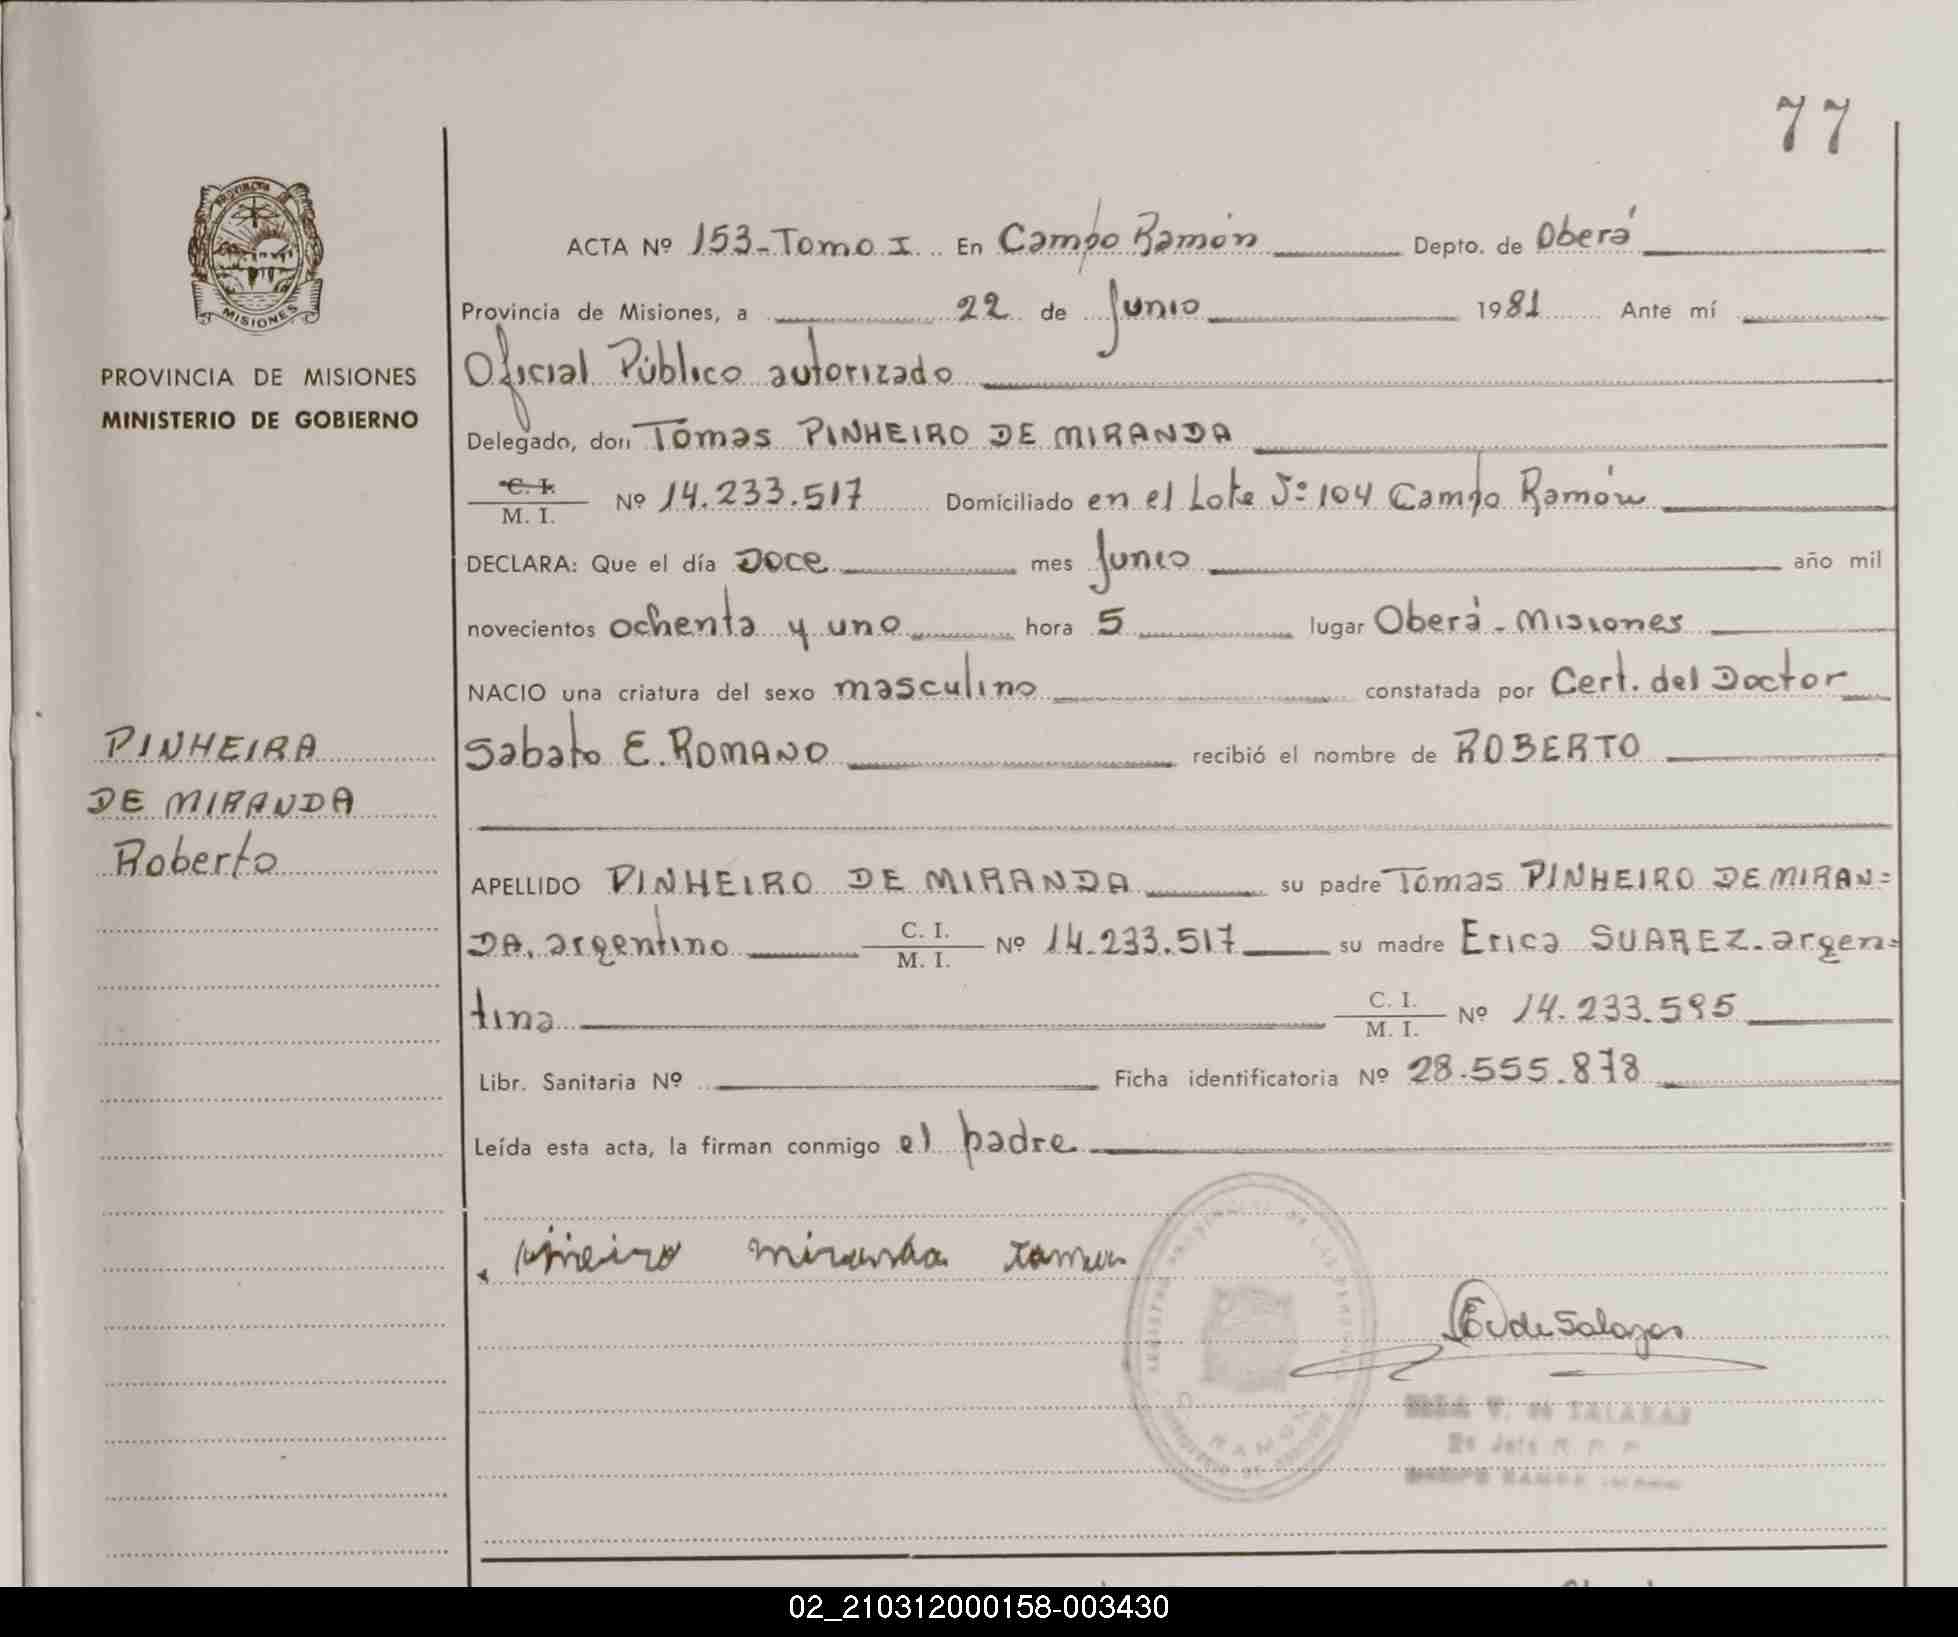 77
PROVINCIA DE MISIONES
MINISTERIO DE GOBIERNO
PINHEIRA
DE MIRANDA
Roberto
ACTA Nº 153-Tomo I En Campo Ramón Depto. de Oberá
Provincia de Misiones, a 22 de Junio 1981 Ante mí
Oficial Público autorizado
Delegado, don Tomas PINHEIRO DE MIRANDA
C. I. / M. I. Nº 14.233.517 Domiciliado en el Lote Nº 104 Campo Ramón
DECLARA: Que el día Doce mes Junio año mil
novecientos ochenta y uno hora 5 lugar Oberá - Misiones
NACIO una criatura del sexo masculino constatada por Cert. del Doctor
Sabato E. ROMANO recibió el nombre de ROBERTO
APELLIDO PINHEIRO DE MIRANDA su padre Tomas PINHEIRO DE MIRAN=
DA, argentino C. I. / M. I. Nº 14.233.517 su madre Erica SUAREZ - argen=
tina C. I. / M. I. Nº 14.233.595
Libr. Sanitaria Nº Ficha identificatoria Nº 28.555.878
Leída esta acta, la firman conmigo el padre
miranda
de Salazar
V. de SALAZAR
RAMON
02_210312000158-003430